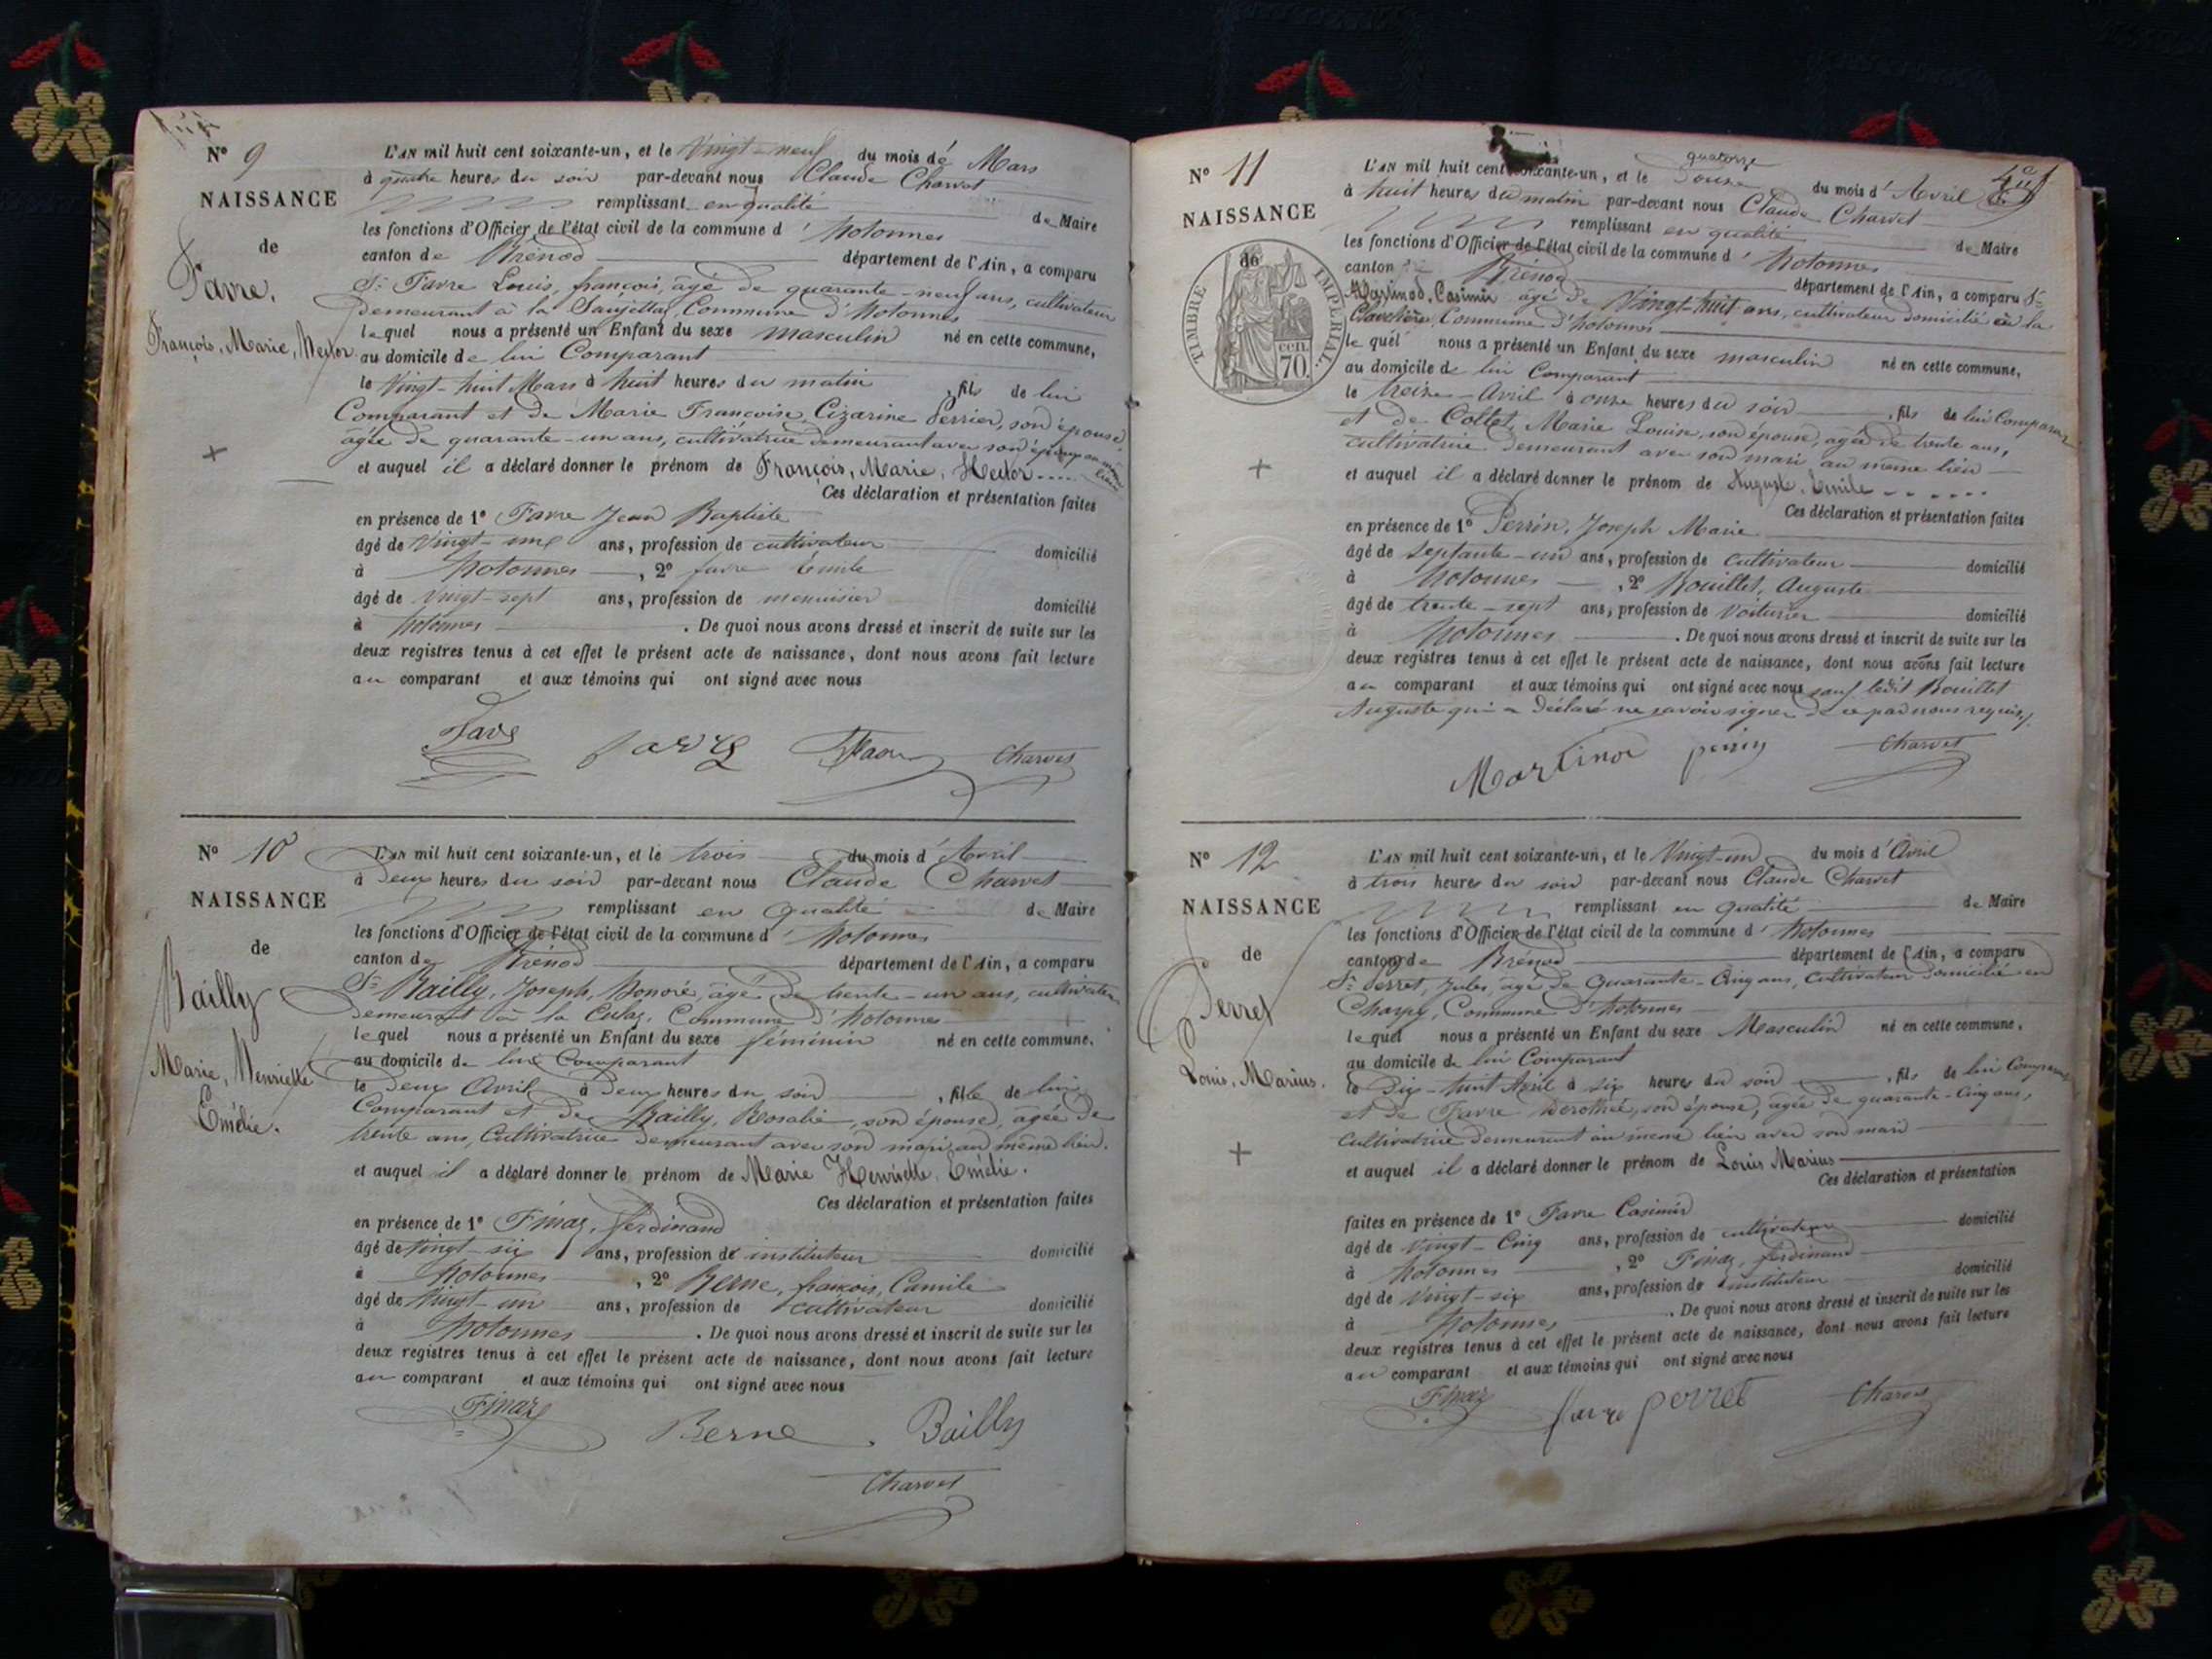 N° 9
NAISSANCE
de
Favre,
François, Marie, Hector
L'AN mil huit cent soixante-un, et le Vingt-neuf du mois de Mars
à quatre heures du soir par-devant nous Claude Charvet
remplissant en qualité de Maire
les fonctions d'Officier de l'état civil de la commune d'hotonnes
canton de Brénod département de l'Ain, a comparu
Sr Favre Louis, françois, âgé de quarante-neuf ans, cultivateur
demeurant à la Commune d'hotonnes
lequel nous a présenté un Enfant du sexe masculin né en cette commune,
au domicile de lui Comparant
le Vingt-huit Mars à huit heures du matin, fils de lui
Comparant et de Marie Françoise Cizarine Perrier, son épouse,
âgée de quarante-un ans, cultivatrice demeurant avec son époux au même lieu
et auquel il a déclaré donner le prénom de François, Marie, Hector....
Ces déclaration et présentation faites
en présence de 1° Favre Jean Baptiste
âgé de Vingt-un ans, profession de cultivateur domicilié
à hotonnes, 2° favre Emile
âgé de Vingt-sept ans, profession de menuisier domicilié
à hotonnes. De quoi nous avons dressé et inscrit de suite sur les
deux registres tenus à cet effet le présent acte de naissance, dont nous avons fait lecture
au comparant et aux témoins qui ont signé avec nous
Favre Charvet
N° 10
NAISSANCE
de
Bailly
Marie, Henriette
Emélie.
L'AN mil huit cent soixante-un, et le trois du mois d'Avril
à Deux heures du soir par-devant nous Claude Charvet
remplissant en qualité de Maire
les fonctions d'Officier de l'état civil de la commune d'hotonnes
canton de Brénod département de l'Ain, a comparu
Sr Bailly, Joseph, Honoré, âgé de trente-un ans, cultivateur
demeurant à la Commune d'hotonnes
lequel nous a présenté un Enfant du sexe féminin né en cette commune.
au domicile de lui Comparant
le Deux Avril à deux heures du soir, fille de lui
Comparant et de Bailly, Rosalie, son épouse, âgée de
trente ans, Cultivatrice demeurant avec son mari au même lieu.
et auquel il a déclaré donner le prénom de Marie Henriette, Emélie.
Ces déclaration et présentation faites
en présence de 1° Finaz, ferdinand
âgé de Vingt-six ans, profession de instituteur domicilié
à hotonnes, 2° Berne, françois, Camile
âgé de Vingt-un ans, profession de cultivateur domicilié
à hotonnes. De quoi nous avons dressé et inscrit de suite sur les
deux registres tenus à cet effet le présent acte de naissance, dont nous avons fait lecture
au comparant et aux témoins qui ont signé avec nous
Finaz Berne Bailly
Charvet
N° 11
NAISSANCE
de
TIMBRE IMPÉRIAL
cen. 70.
quatorze
L'AN mil huit cent soixante-un, et le douze du mois d'Avril
à huit heures du matin par-devant nous Claude Charvet
remplissant en qualité de Maire
les fonctions d'Officier de l'état civil de la commune d'hotonnes
canton de Brénod département de l'Ain, a comparu Sr
Martinod, Casimir âgé de Vingt-huit ans, cultivateur domicilié à la
Commune d'hotonnes
lequel nous a présenté un Enfant du sexe masculin né en cette commune,
au domicile de lui Comparant
le treize Avril à onze heures du soir, fils de lui Comparant
et de Collet, Marie Louise, son épouse, âgée de trente ans,
cultivatrice demeurant avec son mari au même lieu
et auquel il a déclaré donner le prénom de Auguste, Emile
Ces déclaration et présentation faites
en présence de 1° Perrin, Joseph Marie
âgé de septante-un ans, profession de cultivateur domicilié
à hotonnes, 2° Bouillet, Auguste
âgé de trente-sept ans, profession de Voiturier domicilié
à hotonnes. De quoi nous avons dressé et inscrit de suite sur les
deux registres tenus à cet effet le présent acte de naissance, dont nous avons fait lecture
au comparant et aux témoins qui ont signé avec nous sauf ledit Bouillet
Auguste qui a déclaré ne savoir signer de ce par nous requis
Martinod perrin Charvet
N° 12
NAISSANCE
de
Perret
Louis, Marius.
L'AN mil huit cent soixante-un, et le Vingt-un du mois d'Avril
à trois heures du soir par-devant nous Claude Charvet
remplissant en qualité de Maire
les fonctions d'Officier de l'état civil de la commune d'hotonnes
canton de Brénod département de l'Ain, a comparu
Sr Perret, Jules, âgé de Quarante-Cinq ans, cultivateur domicilié en
Charpy, Commune d'hotonnes
lequel nous a présenté un Enfant du sexe Masculin né en cette commune,
au domicile de lui Comparant
le Dix-huit Avril à six heures du soir, fils de lui Comparant
et de Favre Dorothée, son épouse, âgée de quarante-Cinq ans,
cultivatrice demeurant au même lieu avec son mari
et auquel il a déclaré donner le prénom de Louis Marius
Ces déclaration et présentation
faites en présence de 1° Favre Casimir
âgé de Vingt-Cinq ans, profession de cultivateur domicilié
à hotonnes, 2° Finaz, ferdinand
âgé de Vingt-six ans, profession de instituteur domicilié
à hotonnes. De quoi nous avons dressé et inscrit de suite sur les
deux registres tenus à cet effet le présent acte de naissance, dont nous avons fait lecture
au comparant et aux témoins qui ont signé avec nous
Finaz favre perret Charvet